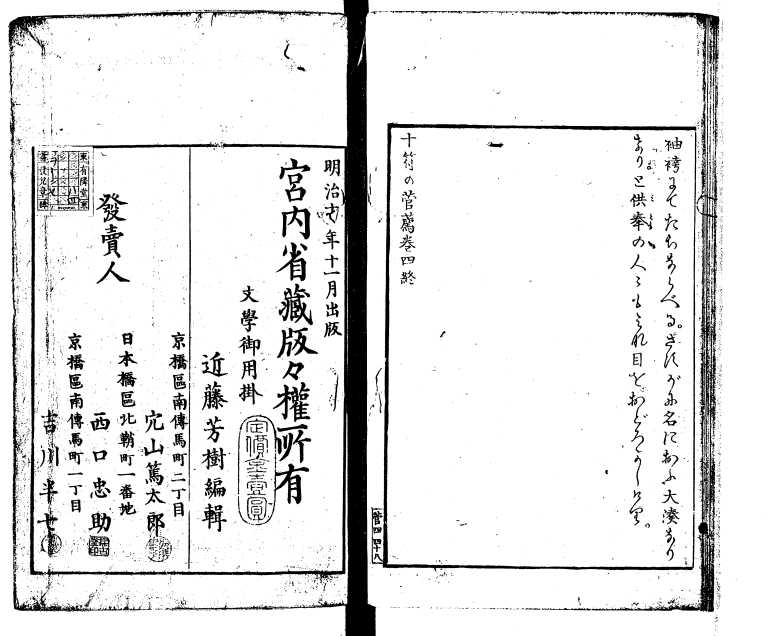 袖褂まてたちならべる。さすがに名におふ大湊なり
なりと供奉の人々もみな目をおどろかしけり。
十符の菅薦巻四終
菅四 四十八
明治 年十一月出版
宮内省藏版々權所有
文學御用掛
近藤芳樹編輯
定價金壹圓
發賣人
京橋區南傳馬町二丁目
穴山篤太郎
日本橋區北鞘町一番地
西口忠助
京橋區南傳馬町一丁目
吉川半七